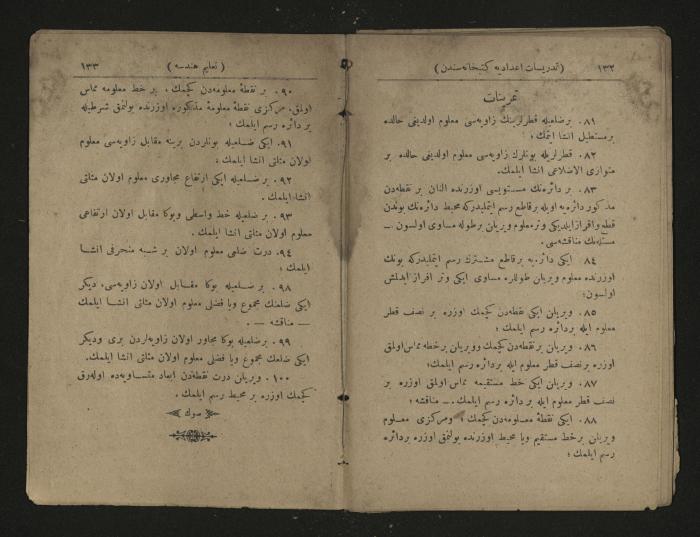 ١٣٢ ( تدریسات اعدادیه کتبخانه‌سندن )
تمرینات
٨١ . بر ضلعیله قطرلرینك زاویه‌سی معلوم اولدیغی حالده
بر مستطیل انشا ایتمك ؛
٨٢ . قطرلریله بونلرك زاویه‌سی معلوم اولدیغی حالده بر
متوازی الاضلاعی انشا ایلمك .
٨٣ . بر دائره‌نك مستویسی اوزرنده النان بر نقطه‌دن
مذکور دائره‌یه اویله بر قاطع رسم ایتملیدرکه محیط دائره‌نك بوندن
قطع وافراز ایلدیکی وتر معلوم ویریلن بر طوله مساوی اولسون ـ
مسئله‌نك مناقشه‌سی .
٨٤ . ایکی دائره‌یه بر قاطع مشترك رسم ایتملیدرکه بونك
اوزرنده معلوم ویریلن طوللره مساوی ایکی وتر افراز ایدلمش
اولسون ؛
٨٥ . ویریلن ایکی نقطه‌دن کچمك اوزره بر نصف قطر
معلوم ایله بر دائره رسم ایلمك ؛
٨٦ . ویریلن بر نقطه‌دن کچمك وویریلن بر خطه مماس اولمق
اوزره بر نصف قطر معلوم ایله بر دائره رسم ایلمك ؛
٨٧ . ویریلن ایکی خط مستقیمه مماس اولمق اوزره بر
نصف قطر معلوم ایله بر دائره رسم ایلمك . ـ مناقشه ؛
٨٨ . ایکی نقطهٔ معلومه‌دن کچمك ؛ ومرکزی معلوم
ویریلن بر خط مستقیم ویا محیط اوزرنده بولنمق اوزره بر دائره
رسم ایلمك ؛
( تعلیم هندسه ) ١٣٣
٩٠ . بر نقطهٔ معلومه‌دن کچمك ، بر خط معلومه مماس
اولمق ، مرکزی نقطهٔ معلومهٔ مذکوره اوزرنده بولنمق شرطیله
بر دائره رسم ایلمك ؛
٩١ . ایکی ضلعیله بونلردن برینه مقابل زاویه‌سی معلوم
اولان مثلثی انشا ایلمك .
٩٢ . بر ضلعیله ایکی ارتفاع مجاوری معلوم اولان مثلثی
انشا ایلمك .
٩٣ . بر ضلعیله خط واسطی وبوکا مقابل اولان ارتفاعی
معلوم اولان مثلثی انشا ایلمك .
٩٤ . درت ضلعی معلوم اولان بر شبه منحرفی انشا
ایلمك ؛
٩٨ . بر ضلعیله بوکا مقابل اولان زاویه‌سی ، دیکر
ایکی ضلعنك مجموع ویا فضلی معلوم اولان مثلثی انشا ایلمك
ـ مناقشه ـ .
٩٩ . بر ضلعیله بوکا مجاور اولان زاویه‌لردن بری ودیکر
ایکی ضلعك مجموع ویا فضلی معلوم اولان مثلثی انشا ایلمك .
١٠٠ . ویریلن درت نقطه‌دن ابعاد متساویه‌ده اوله‌رق
کچمك اوزره بر محیط رسم ایلمك .
صوك